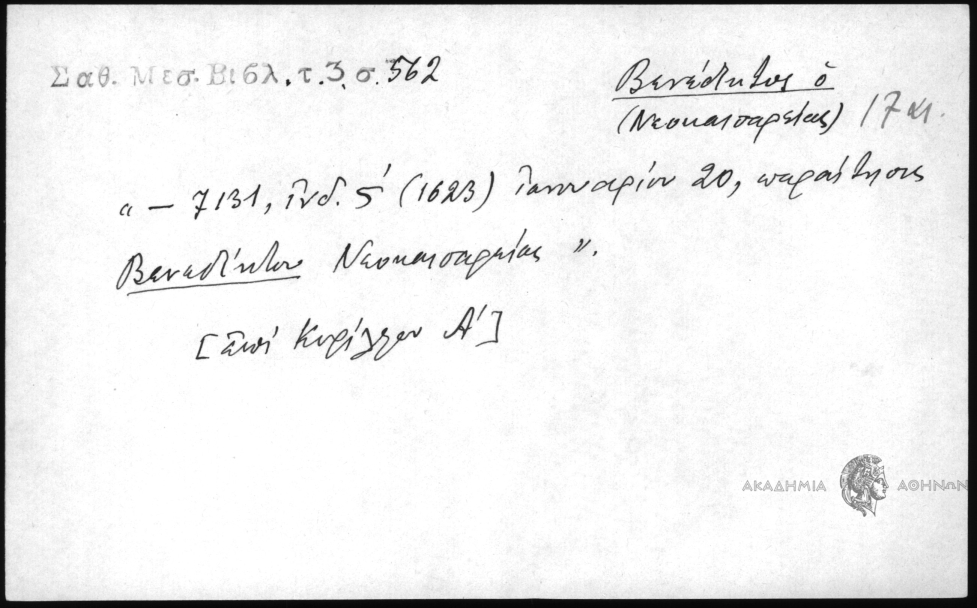 Σαθ. Μεσ. Βιβλ. τ. 3. σ. 562
Βενέδικτος ὁ
(Νεοκαισαρείας) 17 αι.
« — 7131, ἰνδ. ς΄ (1623) ἰαννουαρίου 20, παραίτησις
Βενεδίκτου Νεοκαισαρείας ».
[ἐπὶ Κυρίλλου Α΄]
ΑΚΑΔΗΜΙΑ ΑΘΗΝΩΝ